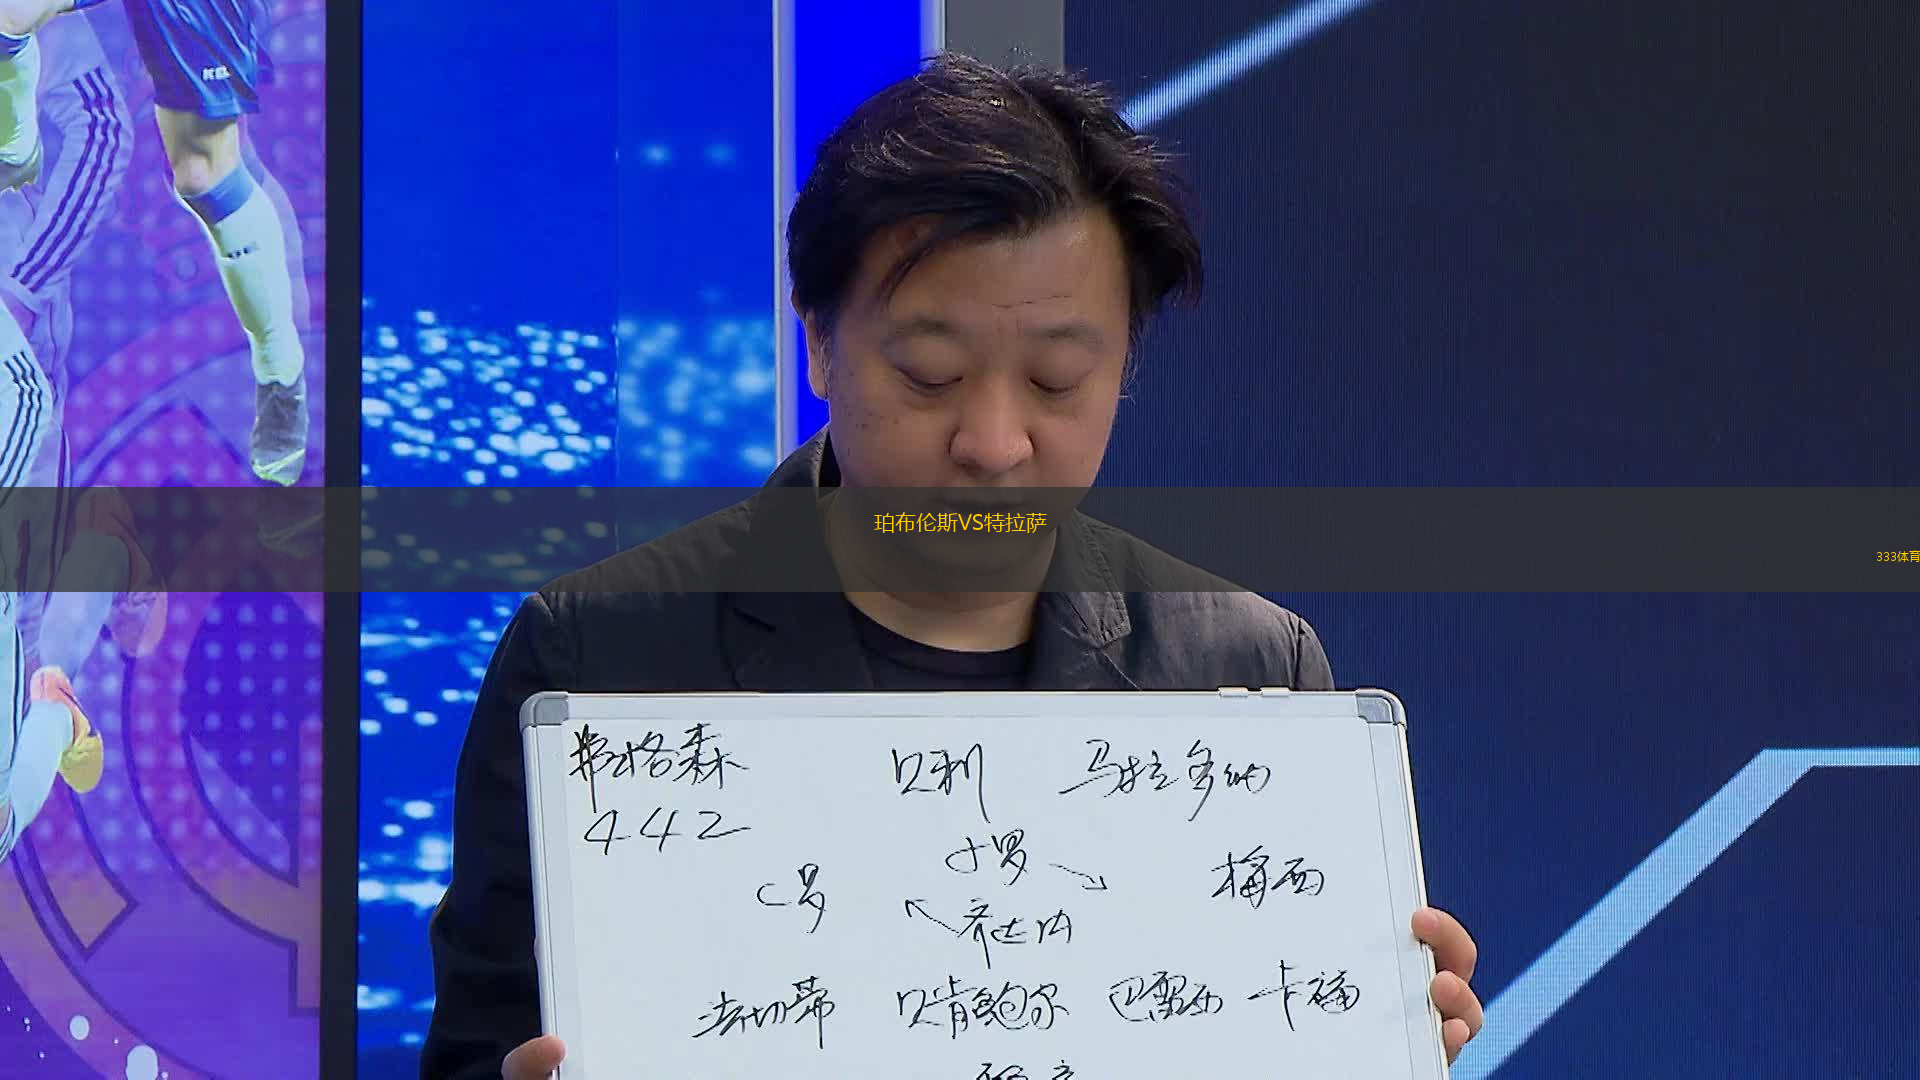 珀布伦斯VS特拉萨
333体育
弗格森 贝利 马拉多纳
442
小罗
C罗 梅西
齐达内
法切蒂 贝肯鲍尔 巴雷西 卡福